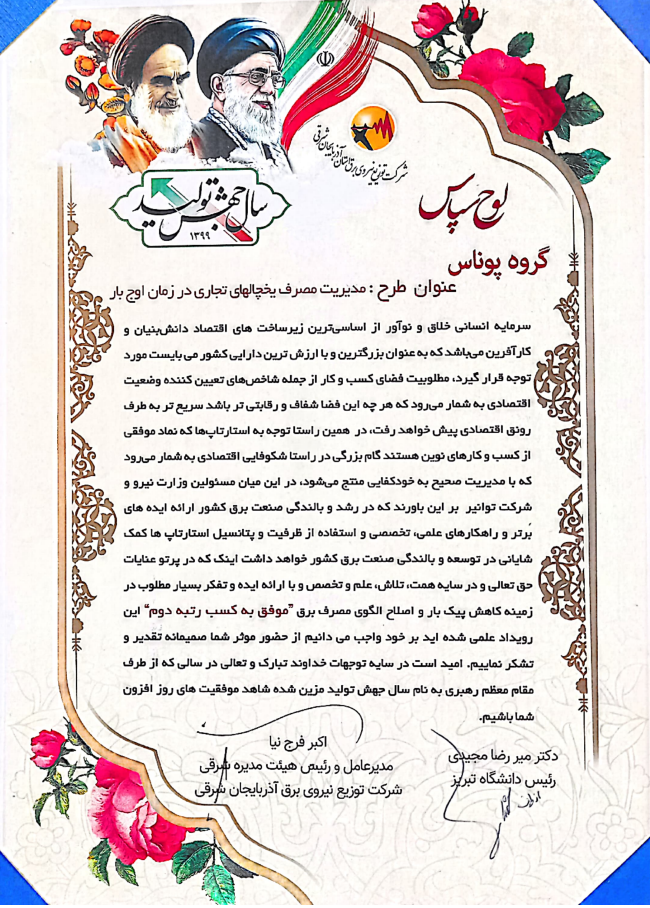 شرکت توزیع نیروی برق استان آذربایجان شرقی
سال جهش تولید
۱۳۹۹
لوح سپاس
گروه پوناس
عنوان طرح : مدیریت مصرف یخچالهای تجاری در زمان اوج بار
سرمایه انسانی خلاق و نوآور از اساسی‌ترین زیرساخت های اقتصاد دانش‌بنیان و
کارآفرین می‌باشد که به عنوان بزرگترین و با ارزش ترین دارایی کشور می بایست مورد
توجه قرار گیرد، مطلوبیت فضای کسب و کار از جمله شاخص‌های تعیین کننده وضعیت
اقتصادی به شمار می‌رود که هر چه این فضا شفاف و رقابتی تر باشد سریع تر به طرف
رونق اقتصادی پیش خواهد رفت، در همین راستا توجه به استارتاپ‌ها که نماد موفقی
از کسب و کارهای نوین هستند گام بزرگی در راستا شکوفایی اقتصادی به شمار می‌رود
که با مدیریت صحیح به خودکفایی منتج می‌شود، در این میان مسئولین وزارت نیرو و
شرکت توانیر بر این باورند که در رشد و بالندگی صنعت برق کشور ارائه ایده های
برتر و راهکارهای علمی، تخصصی و استفاده از ظرفیت و پتانسیل استارتاپ ها کمک
شایانی در توسعه و بالندگی صنعت برق کشور خواهد داشت اینک که در پرتو عنایات
حق تعالی و در سایه همت، تلاش، علم و تخصص و با ارائه ایده و تفکر بسیار مطلوب در
زمینه کاهش پیک بار و اصلاح الگوی مصرف برق "موفق به کسب رتبه دوم" این
رویداد علمی شده اید بر خود واجب می دانیم از حضور موثر شما صمیمانه تقدیر و
تشکر نماییم. امید است در سایه توجهات خداوند تبارک و تعالی در سالی که از طرف
مقام معظم رهبری به نام سال جهش تولید مزین شده شاهد موفقیت های روز افزون
شما باشیم.
دکتر میر رضا مجیدی
رئیس دانشگاه تبریز
اکبر فرج نیا
مدیرعامل و رئیس هیئت مدیره شرقی
شرکت توزیع نیروی برق آذربایجان شرقی